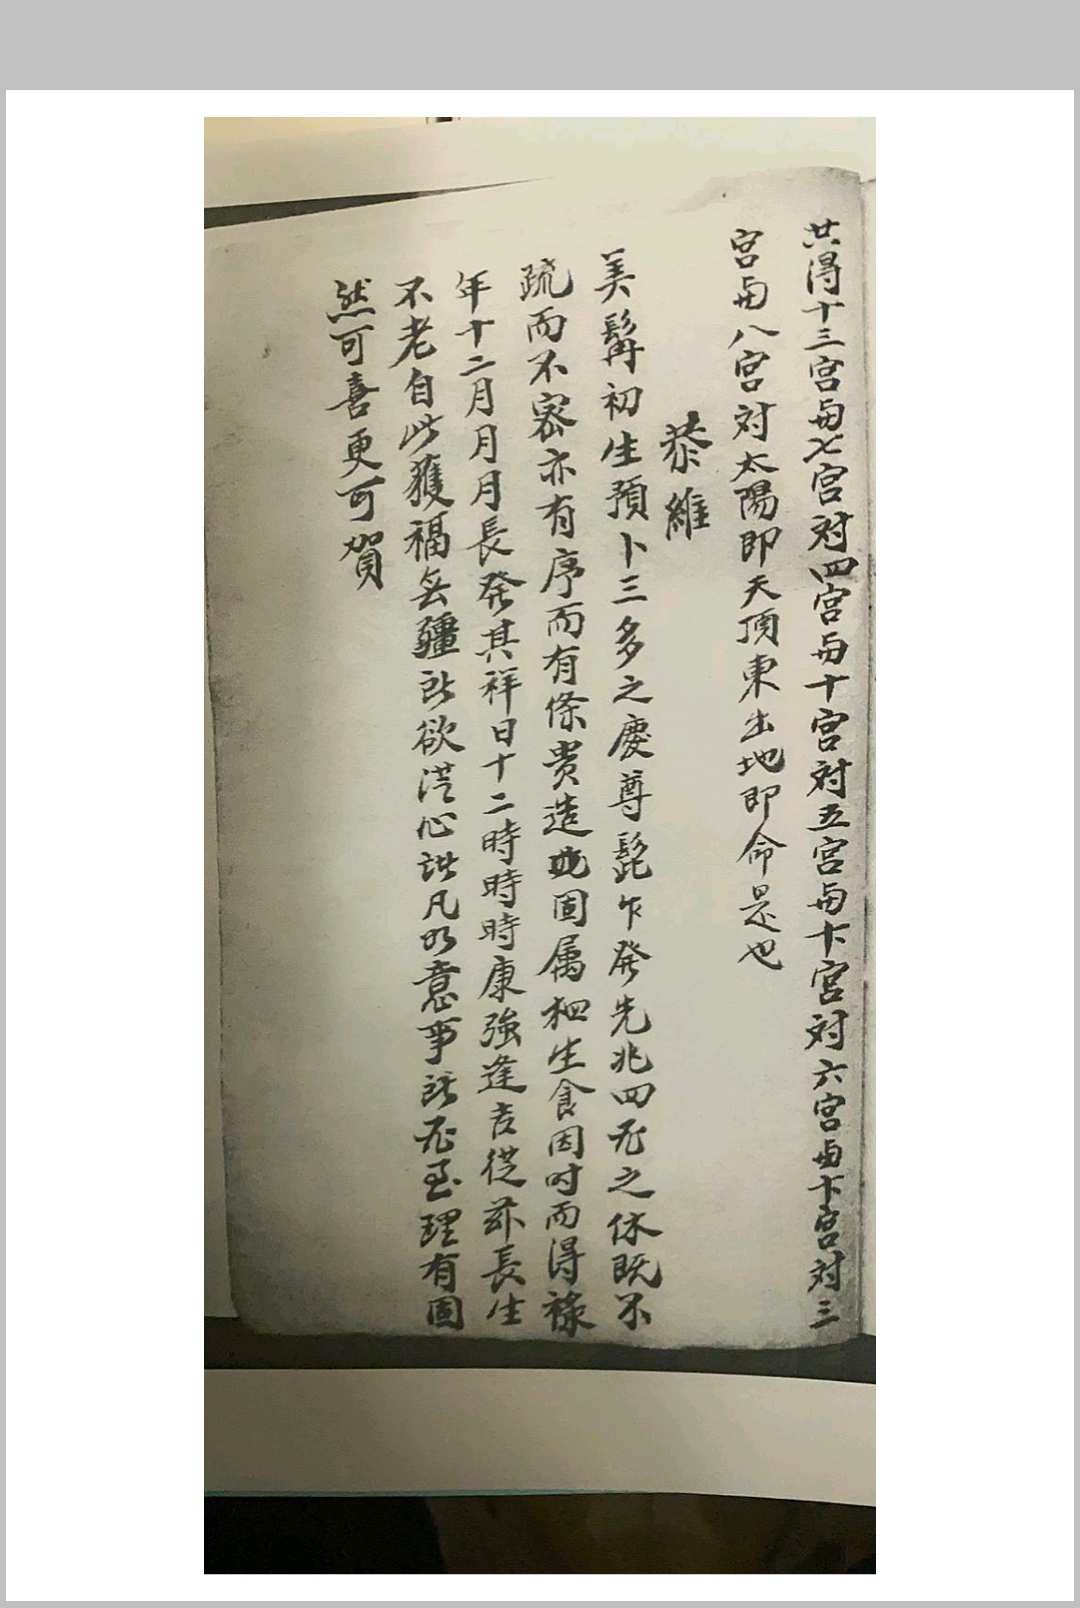 共得十三宮與七宮対四宮與十宮対五宮與十宮対六宮與十宮対三
宮與八宮対太陽即天頂東出地即命是也
恭維
美髯初生預卜三多之慶尊髭乍發先兆四 之休既不
疏而不密亦有序而有條貴造 固属 生食因时而得祿
年十二月月月長發其祥日十二時時時康強逢吉從茲長生
不老自此獲福無疆所欲從心 凡如意事 至理有固
然可喜更可賀